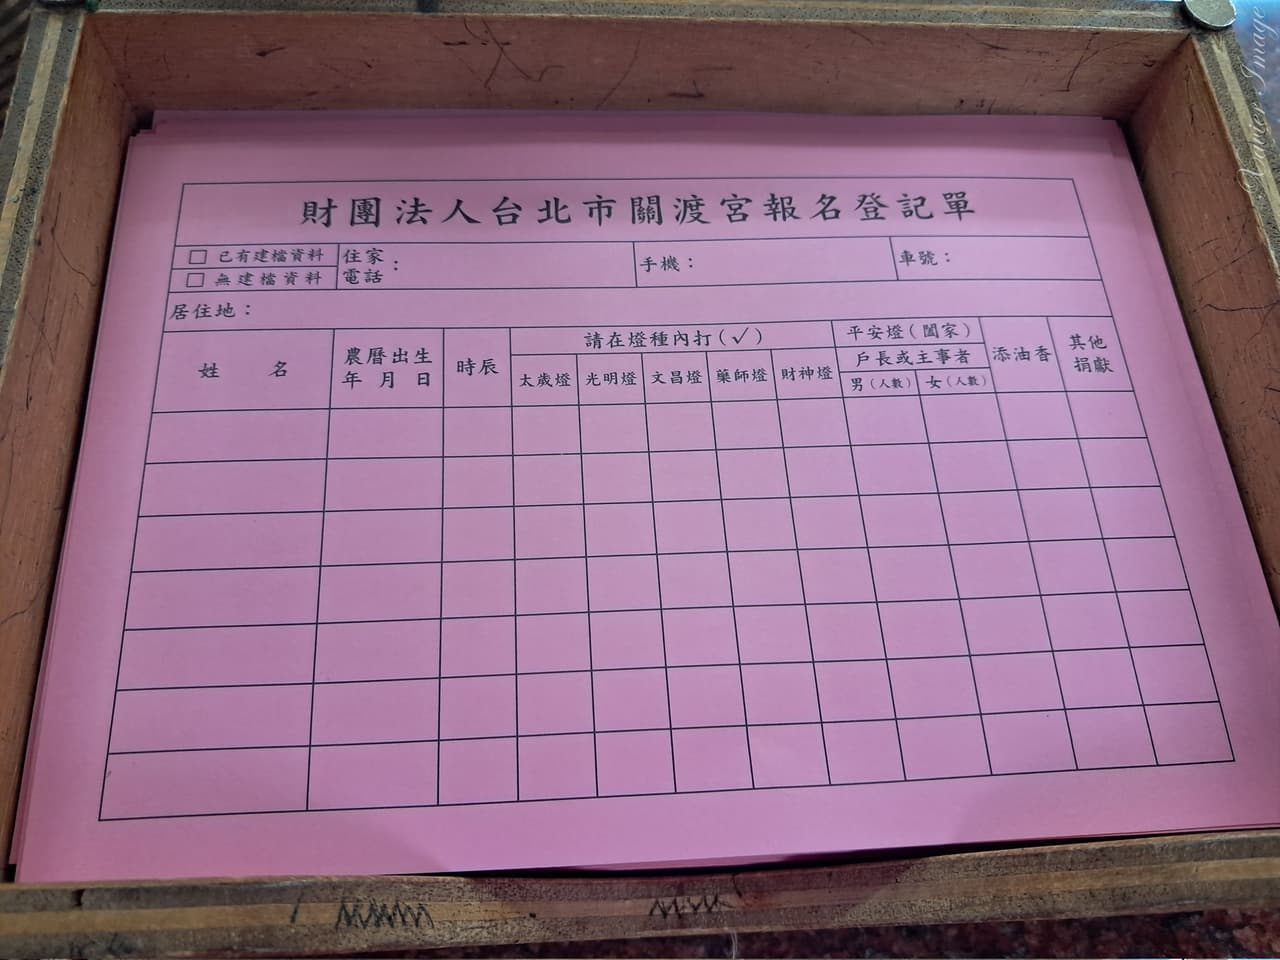 財團法人台北市關渡宮報名登記單
□ 已有建檔資料
□ 無建檔資料
住家電話：
手機：
車號：
居住地：
姓 名
農曆出生
年 月 日
時辰
請在燈種內打(✓)
太歲燈 光明燈 文昌燈 藥師燈 財神燈
平安燈(闔家)
戶長或主事者
男(人數) 女(人數)
添油香
其他
捐獻
Xavier Image